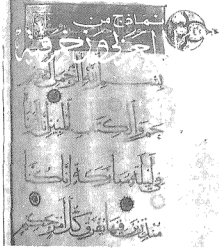 نماذج من
بسم الله الرحمن الرحيم
حم والكتب المبين
في ليلة مبركة انا كنا
منذرين فيها يفرق كل امر حكيم